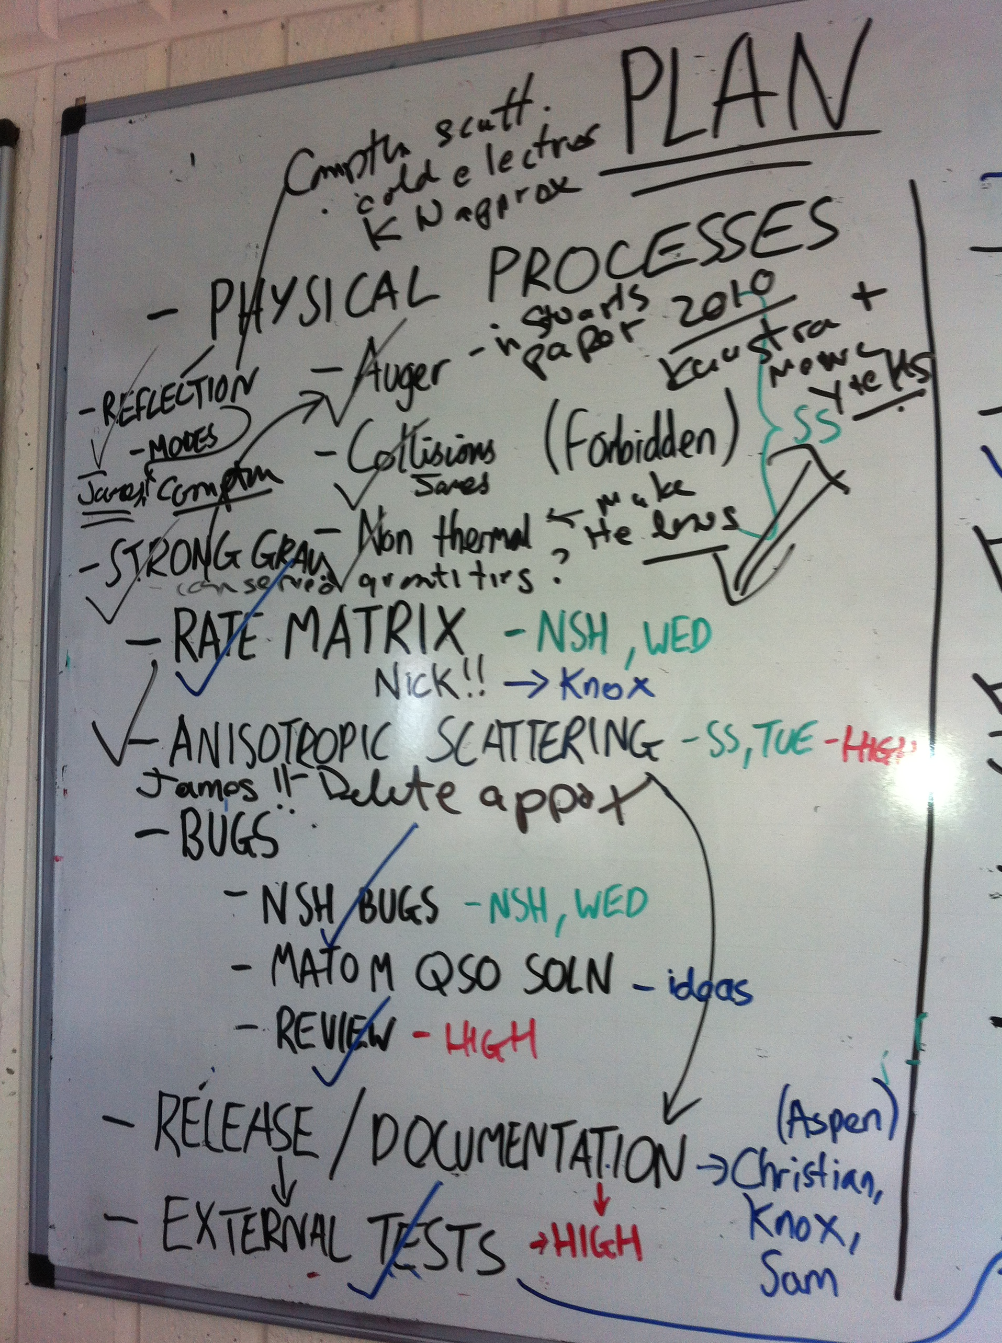 PLAN
Compton scatt.
cold electrons
KN approx
- PHYSICAL PROCESSES
- REFLECTION
- MODES
James! Compton
- Auger - in Stuarts paper 2010
+
- Collisions (Forbidden)
James
SS
- Non thermal ← make He
- STRONG GRAV
conserved quantities?
- RATE MATRIX - NSH, WED
NICK!! → Knox
- ANISOTROPIC SCATTERING - SS, TUE - HIGH
James!! - Delete approx
- BUGS
- NSH BUGS - NSH, WED
- MATOM QSO SOLN - ideas
- REVIEW - HIGH
- RELEASE / DOCUMENTATION → (Aspen)
Christian,
Knox,
Sam
- EXTERNAL TESTS → HIGH